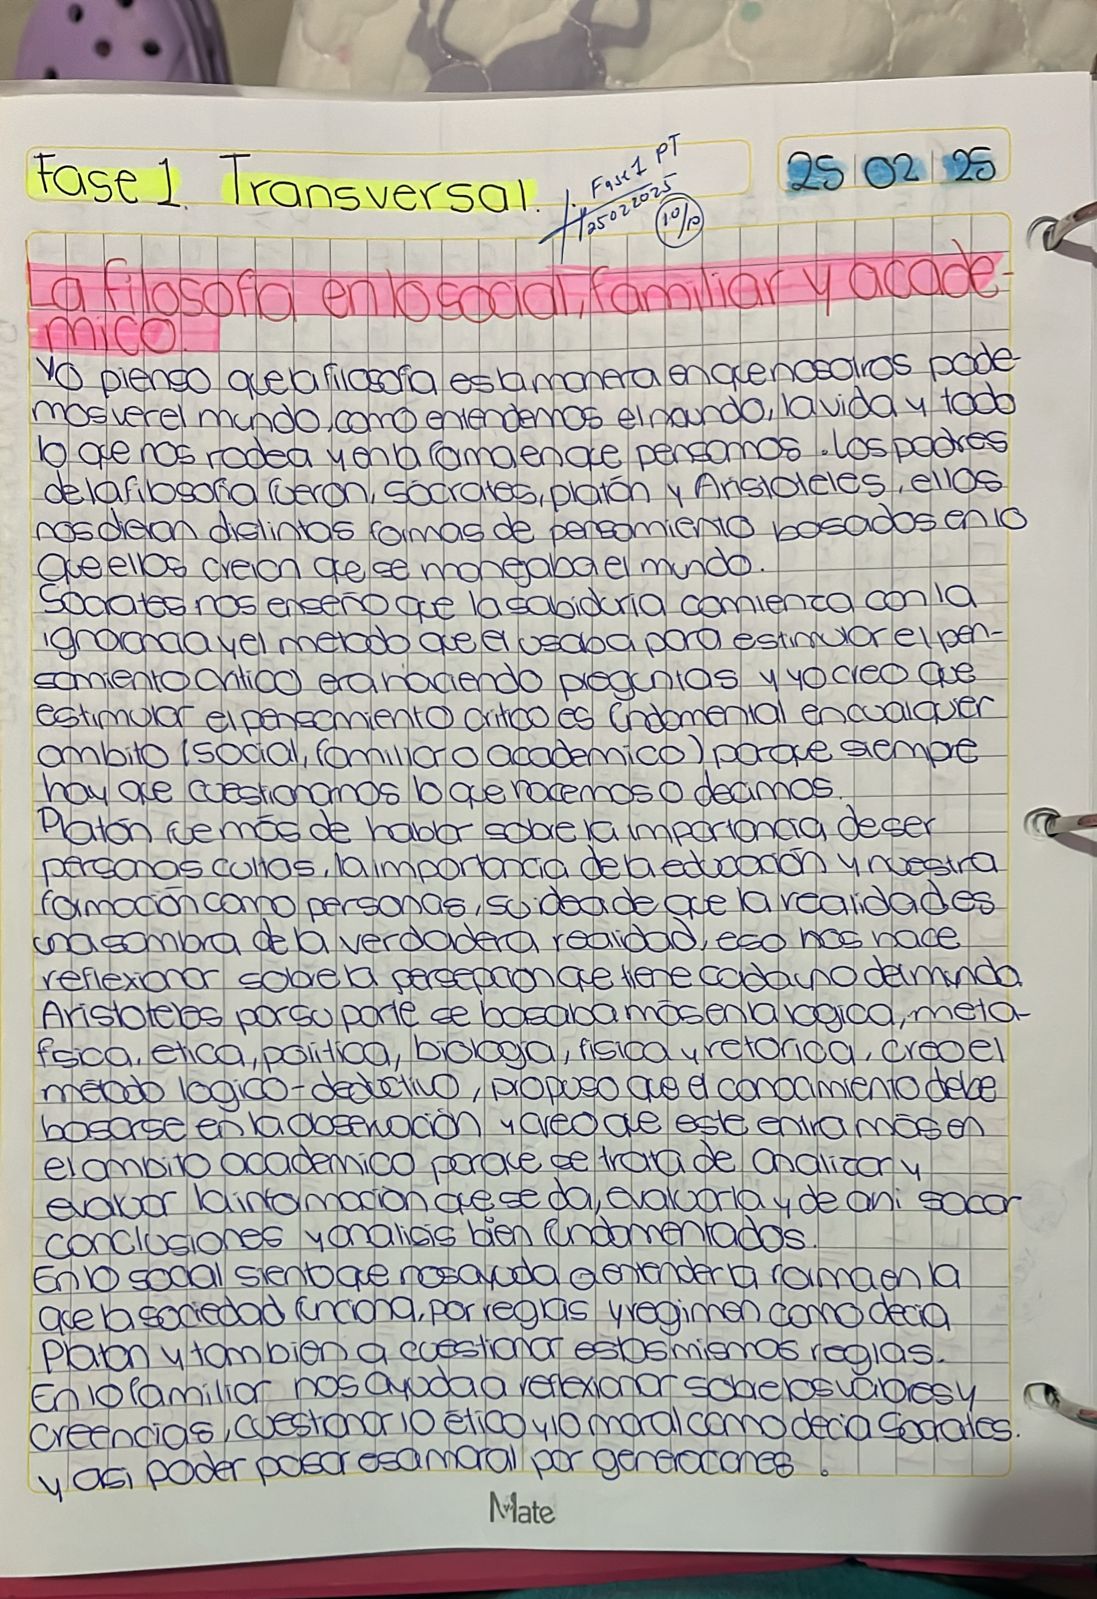 Fase 1. Transversal.
Fase 1 PT
25022025
10/10
25|02|25
La filosofia en lo social, familiar y acade-
mico.
Yo pienso que la filosofía es la manera en que nosotros pode-
mos ver el mundo, como entendemos el mundo, la vida y todo
lo que nos rodea y en la forma en que pensamos. Los padres
de la filosofía fueron, Sócrates, platón y Aristoteles, ellos
nos dieron distintas formas de pensamiento basados en lo
que ellos creian que se manegaba el mundo.
Socrates nos enseño que la sabiduria comienza con la
ignorancia y el metodo que el usaba para estimular el pen-
samiento critico era haciendo preguntas y yo creo que
estimular el pensamiento critico es fundamental en cualquier
ambito (social, familiar o academico) porque siempre
hay que cuestionarnos lo que hacemos o decimos.
Platón fue más de hablar sobre la importancia de ser
personas cultas, la importancia de la educación y nuestra
formación como personas, su idea de que la realidad es
una sombra de la verdadera realidad, eso nos hace
reflexionar sobre la persepcion que tiene cada uno del mundo.
Aristoteles por su parte se basaba más en la logica, meta-
fsica, etica, politica, biologia, fisica y retorica, creo el
metodo logico-deductivo, propuso que el conocimiento debe
basarse en la observación y creo que este entra más en
el ambito academico porque se trata de analizar y
evaluar la informacion que se da, evaluarla y de ahi sacar
conclusiones y analisis bien fundamentados.
En lo social siento que nos ayuda a entender la forma en la
que la sociedad funciona, por reglas y regimen como decia
Platon y tambien a cuestionar estos mismos reglas.
En lo familiar nos ayuda a reflexionar sobre los valores y
creencias, cuestionar lo ético y lo moral como decia Socrates.
y asi poder pasar esa moral por generaciones.
Mate